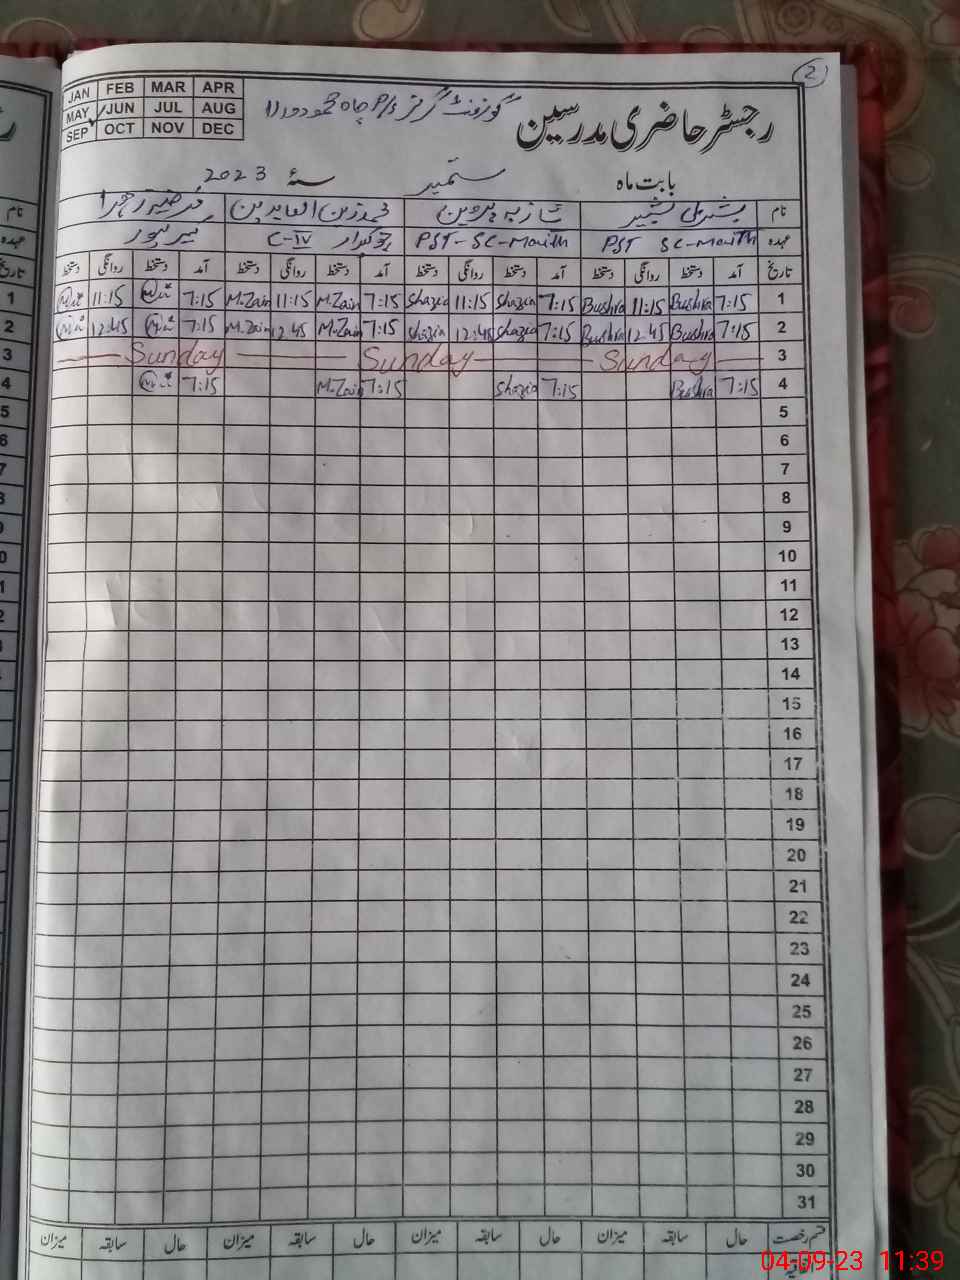 2
JAN FEB MAR APR
MAY JUN JUL AUG
SEP OCT NOV DEC
رجسٹر حاضری مدرسین
گورنمنٹ گرلز P/S چاہ محمود والا
بابت ماہ ستمبر سنہ 2023
نام بشریٰ بشیر شازیہ پروین محمد زین العابدین
عہدہ PST SC-Mouth PST-SC-Mouth چوکیدار C-IV
تاریخ آمد دستخط روانگی دستخط آمد دستخط روانگی دستخط آمد دستخط روانگی دستخط آمد دستخط روانگی دستخط
1 7:15 Bushra 11:15 Bushra 7:15 Shazia 11:15 Shazia 7:15 M.Zain 11:15 M.Zain 7:15 11:15
2 7:15 Bushra 12:45 Bushra 7:15 Shazia 12:45 Shazia 7:15 M.Zain 12:45 M.Zain 7:15 12:45
3 Sunday Sunday Sunday
4 7:15 Bushra 7:15 Shazia 7:15 M.Zain 7:15
5
6
7
8
9
10
11
12
13
14
15
16
17
18
19
20
21
22
23
24
25
26
27
28
29
30
31
قسم رخصت حال سابقہ میزان حال سابقہ میزان حال سابقہ میزان حال سابقہ میزان
04-09-23 11:39